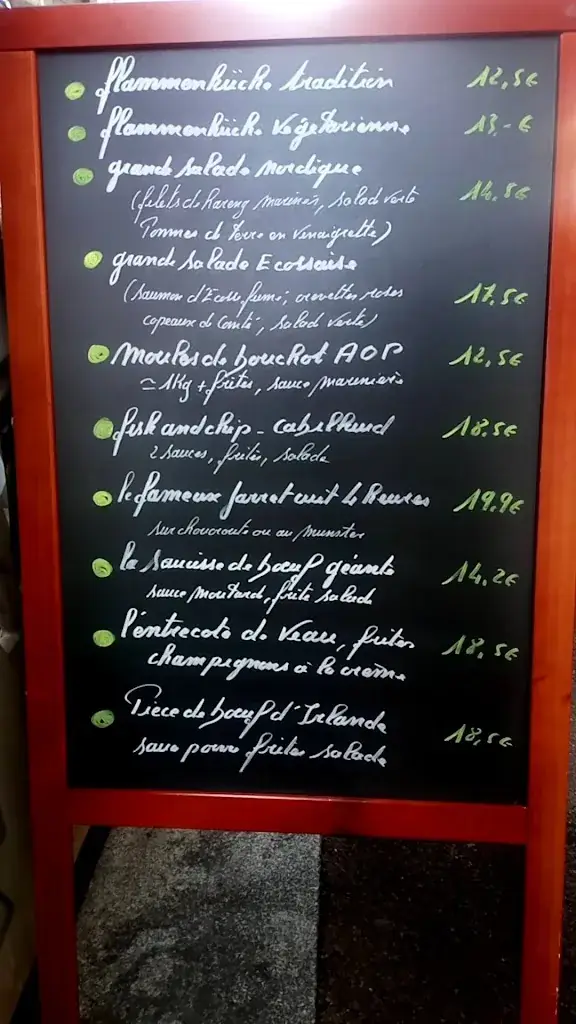 flammenküche tradition 12,5€
flammenküche végétarienne 13,-€
grande salade nordique
(filets de hareng marinés, salad verte 14,5€
Pommes de terre en vinaigrette)
grande salade Ecossaise
(saumon d'Ecosse fumé, crevettes roses 17,5€
copeaux de Comté, salad verte)
Moules de bouchot AOP 12,5€
≃ 1kg + frites, sauce marinière
fish and chip - cabillaud 18.5€
2 sauces, frites, salade
le fameux jarret cuit 4 heures 19.9€
sur choucroute ou au munster
la saucisse de bœuf géante 14,2€
sauce moutard, frite salade
l'entrecote de veau, frites 18,5€
champignons à la crème
Piece de bœuf d'Irlande
sauce poivre frites salade 18,5€